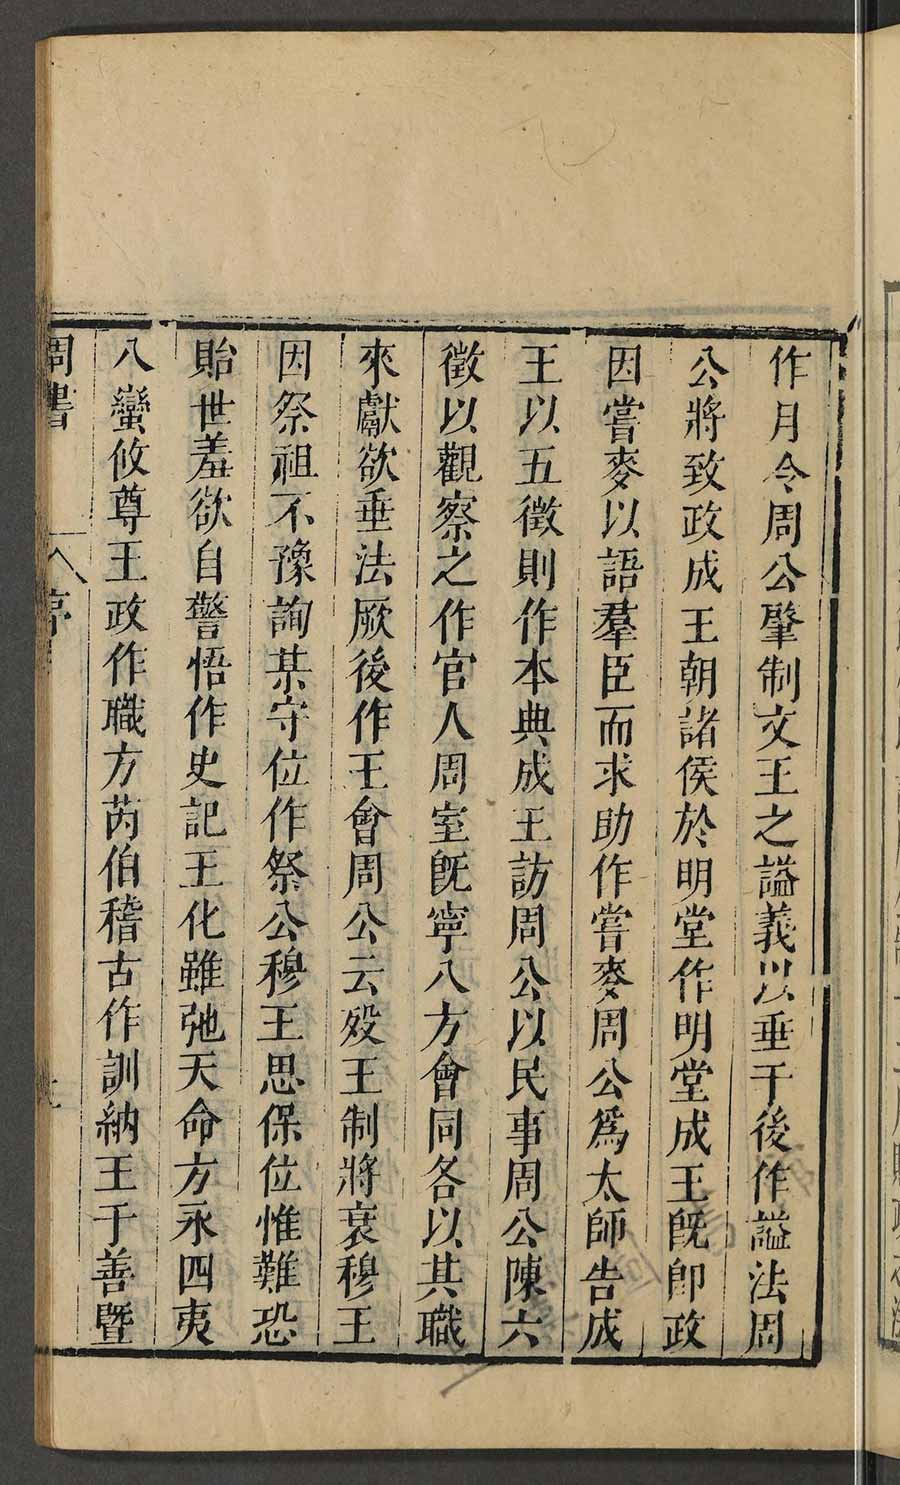 作月令周公肈制文王之謚義以垂于後作謚法周
公將致政成王朝諸侯於明堂作明堂成王旣卽政
因嘗麥以語羣臣而求助作嘗麥周公爲太師告成
王以五徵則作本典成王訪周公以民事周公陳六
徵以觀察之作官人周室旣寧八方會同各以其職
來獻欲垂法厥後作王會周公云殁王制將衰穆王
因祭祖不豫詢某守位作祭公穆王思保位惟難恐
貽世羞欲自警悟作史記王化雖弛天命方永四夷
八蠻攸尊王政作職方芮伯稽古作訓納王于善暨
周書 序